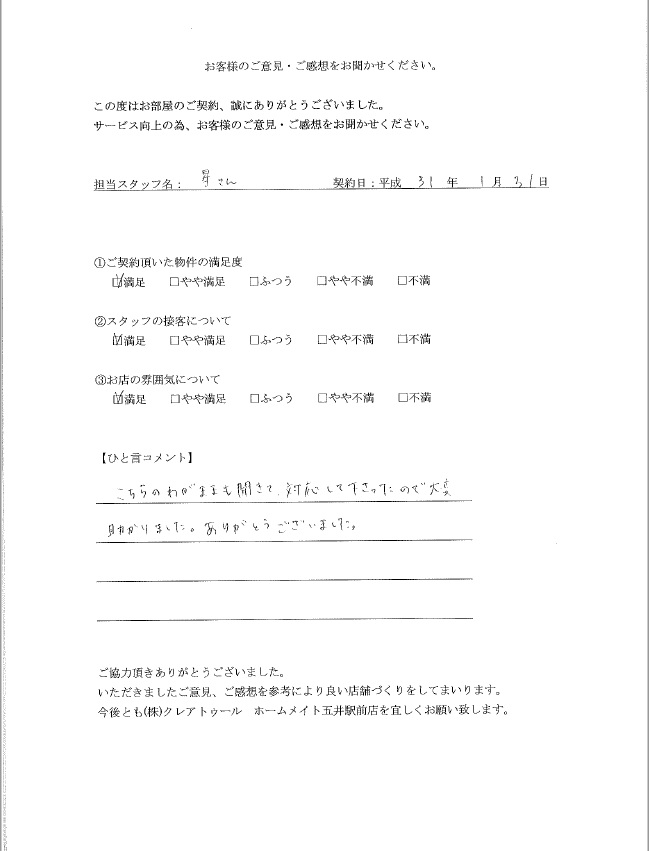 お客様のご意見・ご感想をお聞かせください。
この度はお部屋のご契約、誠にありがとうございました。
サービス向上の為、お客様のご意見・ご感想をお聞かせください。
担当スタッフ名： 星さん 契約日：平成 31 年 1 月 31 日
①ご契約頂いた物件の満足度
☑満足 □やや満足 □ふつう □やや不満 □不満
②スタッフの接客について
☑満足 □やや満足 □ふつう □やや不満 □不満
③お店の雰囲気について
☑満足 □やや満足 □ふつう □やや不満 □不満
【ひと言コメント】
こちらのわがままも聞きて、対応して下さったので大変
助かりました。ありがとうございました。
ご協力頂きありがとうございました。
いただきましたご意見、ご感想を参考により良い店舗づくりをしてまいります。
今後とも(株)クレアトゥール ホームメイト五井駅前店を宜しくお願い致します。